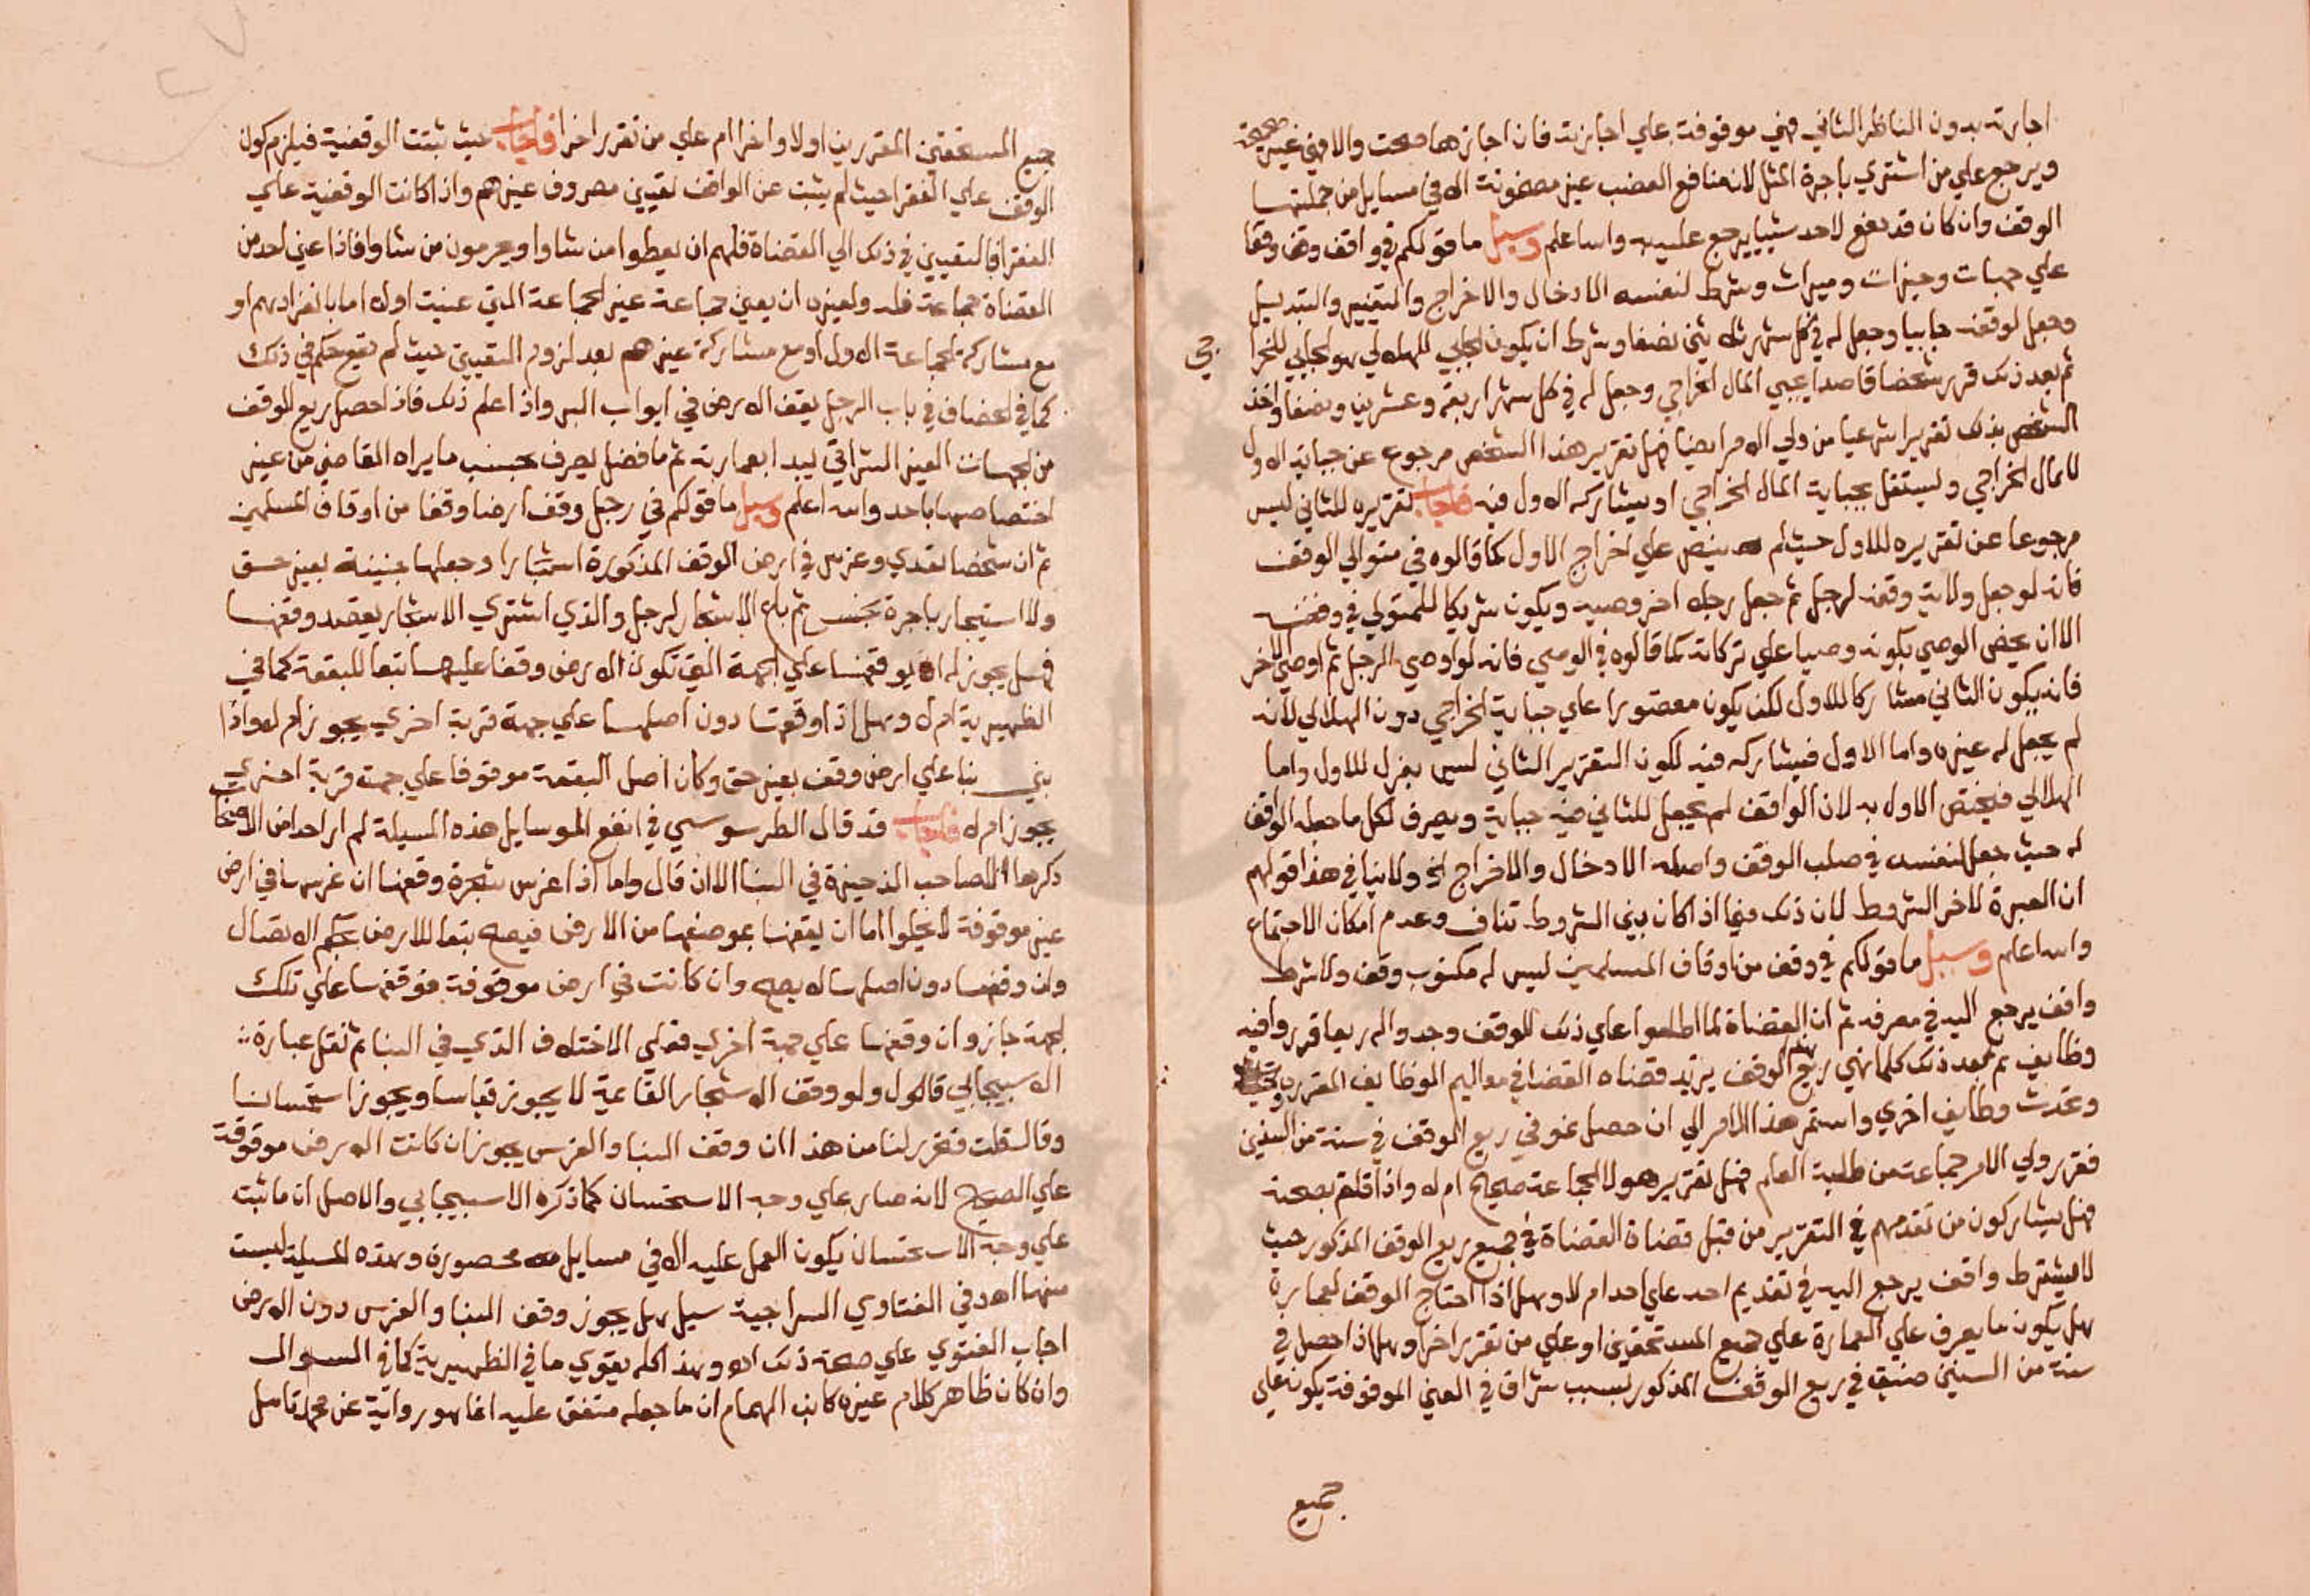 اجارته بدون الناظر الثاني فهي موقوفة علي اجازته فان اجازهما صحت والا فهي غير صحيحة
ويرجع علي من اشتري باجرة المثل لان منافع الغصب غير مضمونة الا في مسايل من جملتها
الوقف وان كان قد دفع لاحد شييا يرجع عليه والله اعلم وسيل ما قولكم في واقف وقف وقفا
علي جهات وخيرات وميراث وشرط لنفسه الادخال والاخراج والتغيير والتبديل
وجعل لوقفه جابيا وجعل له في كل شهر ثلاثين نصفا وشرط ان يكون الجابي للهلالي هو الجابي للخرا
جي
ثم بعد ذلك قرر شخصا قاصدا يجبي المال الخراجي وجعل له في كل شهر اربعة وعشرين نصفا واخذ
الشخص بذلك تقريرا شرعيا من ولي الامر ايضا فهل تقرير هذا الشخص مرجوع عن جباية الاول
للمال الخراجي ويستقل بجباية المال الخراجي او يشاركه الاول فيه فاجاب تقريره للثاني ليس
مرجوعا عن تقريره للاول حيث لم ينص علي اخراج الاول كما قالوه في متولي الوقف
فانه لو جعل ولاية وقفه لرجل ثم جعل رجلا اخر وصيه ويكون شريكا للمتولي في وقفه
الا ان يخص الوصي بكونه وصيا علي تركاته كما قالوه في الوصي فانه لو اوصي لرجل ثم اوصي لاخر
فانه يكون الثاني مشاركا للاول لكنه يكون مقصورا علي جباية الخراجي دون الهلالي لانه
لم يجعل له غيره واما الاول فيشاركه فيه لكون التقرير الثاني ليس بعزل للاول واما
الهلالي فيختص الاول به لان الواقف لم يجعل للثاني فيه جباية ويصرف لكل ما جعله الواقف
له حيث جعل لنفسه في صلب الوقف واصله الادخال والاخراج الخ ولا ينافي هذا قولهم
ان العبرة لاخر الشروط لان ذلك فيما اذا كان بين الشروط تناف وعدم امكان الاجتماع
والله اعلم وسيل ما قولكم في وقف من اوقاف المسلمين ليس له مكتوب وقف ولا شرط
واقف يرجع اليه في مصرفه ثم ان القضاة لما اطلعوا علي ذلك للوقف وجدوا له ريعا قرروا فيه
وظايف ثم بعد ذلك كلما نمي ريع الوقف يزيد قضاه القضا في معاليم الوظايف المقررة
وتحدث وظايف اخري واستمر هذا الامر الي ان حصل نمو في ريع الوقف في سنة من السنين
فقرر ولي الامر جماعة من طلبة العلم فهل تقرير هولا الجماعة صحيح ام لا واذا قلتم بصحته
فهل يشاركون من تقدمهم في التقرير من قبل قضاة القضاة في جميع ريع الوقف المذكور حيث
لا يشترط واقف يرجع اليه في تقديم احد علي احد ام لا وهل اذا احتاج الوقف لعمارة
هل يكون ما يصرف علي العمارة علي جميع المستحقين او علي من تقرر اخرا وهل اذا حصل في
سنة من السنين ضيق في ريع الوقف المذكور بسبب شراقي في العين الموقوفة يكون علي
جميع
جميع المستحقين المقررين اولا واخرا ام علي من تقرر اخرا فاجاب حيث ثبتت الوقفية فيلزم كون
الوقف علي الفقرا حيث لم يثبت عن الواقف تعيين مصروف غيرهم واذا كانت الوقفية علي
الفقرا فالتعيين في ذلك الي القضاة فلهم ان يعطوا من شاوا ويحرمون من شاوا فاذا عين احد من
القضاة جماعة فله ولغيره ان يعين جماعة غير الجماعة التي عينت اولا اما بانفرادهم او
مع مشاركة الجماعة الاول او مع مشاركة غيرهم بعد لزوم التعيين حيث لم يقع حكم في ذلك
كما في الخصاف في باب الرجل يقف الارض في ابواب البر واذا علم ذلك فاذا حصل ريع للوقف
من الجهات الغير الشراقي يبدا بعمارته ثم ما فضل يصرف بحسب ما يراه القاضي من غير
اختصاصها باحد والله اعلم وسيل ما قولكم في رجل وقف ارضا وقفا من اوقاف المسلمين
ثم ان شخصا تعدي وغرس في ارض الوقف المذكورة اشجارا وجعلها جنينة بغير حق
ولا استيجار باجرة بخس ثم باع الاشجار لرجل والذي اشتري الاشجار يقصد وقفها
فهل يجوز له ان يوقفها علي الجهة التي تكون الارض وقفا عليها تبعا للبقعة كما في
الظهيرية ام لا وهل اذا وقفها دون اصلها علي جهة قربة اخري يجوز ام لا واذا
بني بنا علي ارض وقف بغير حق وكان اصل البقعة موقوفا علي جهة قربة اخري
يجوز ام لا فاجاب قد قال الطرسوسي في انفع الوسايل هذه المسيلة لم ار احدا من الاصحاب
ذكرها الا صاحب الذخيرة في البنا الا ان قال واما اذا غرس شجرة وقفها ان غرسها في ارض
غير موقوفة لا يخلوا اما ان يقفها بموضعها من الارض فيصح تبعا للارض بحكم الاتصال
وان وقفها دون اصلها لا يصح وان كانت في ارض موقوفة فوقفها علي تلك
الجهة جاز وان وقفها علي جهة اخري فعلي الاختلاف الذي في البنا ثم نقل عبارة
الاسبيجابي قال ولو وقف الاشجار القاعية لا يجوز قياسا ويجوز استحسانا
وقال قلت فتحرر لنا من هذا ان وقف البنا والغرس يجوز ان كانت الارض موقوفة
علي الصحيح لانه صار علي وجه الاستحسان كما ذكره الاسبيجابي والاصل ان ما ثبت
علي وجه الاستحسان يكون العمل عليه الا في مسايل محصورة وهذه المسيلة ليست
منها اهـ وفي الفتاوي السراجية سيل هل يجوز وقف البنا والغرس دون الارض
اجاب الفتوي علي صحة ذلك اهـ وهذا كله يقوي ما في الظهيرية كما في السوال
وان كان ظاهر كلام غيره كابن الهمام ان ما جعله متفق عليه انما هو رواية عن محمد تامل